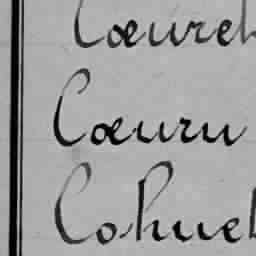 Cœuret
Cœuru
Cohuet